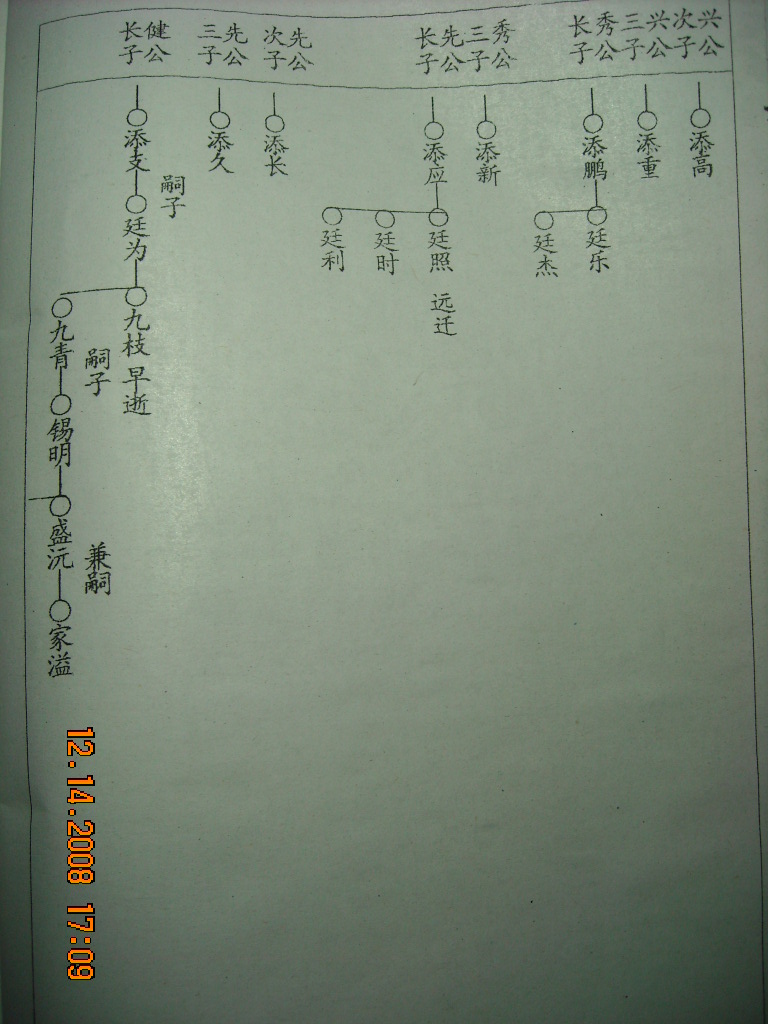 兴公次子
兴公三子
秀公长子
秀公三子
先公长子
先公次子
先公三子
健公长子
添高
添重
添鹏
廷乐
廷杰
添新
添应
廷照 远迁
廷时
廷利
添长
添久
添支
嗣子
廷为
九枝 早逝
嗣子
九青
锡明
盛沅
兼嗣
家溢
12.14.2008 17:09